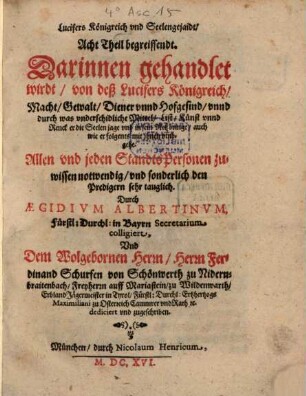 4° Asc. 15
Lucifers Königreich vnd Seelengejaidt/
Acht Theil begreiffendt.
Darinnen gehandlet
wirdt / von deß Lucifers Königreich/
Macht/ Gewalt/ Diener vnnd Hofgesind/ vnnd
durch was vnderschidliche Mittel/ List/ Künst vnnd
Renck er die Seelen jage vnd
auch
wie er folgents mit jhnen vmb-
gehe.
Allen vnd jeden StandtsPersonen zu-
wissen notwendig/ vnd sonderlich den
Predigern sehr tauglich.
Durch
ÆGIDIVM ALBERTINVM,
Fürstl: Durchl: in Bayrn Secretarium
colligiert,
Vnd
Dem Wolgebornen Herrn/ Herrn Fer-
dinand Schurfen von Schönwerth zu Nidern-
braitenbach/ Freyherrn auff Mariastein/ zu Wildenwarth/
Erbland Jägermeister in Tyrol/ Fürstl: Durchl: Ertzhertzogs
Maximiliani zu Osterreich Cammerer vnd Rath rc.
dediciert vnd zugeschriben.
München/ durch Nicolaum Henricum,
M. DC. XVI.